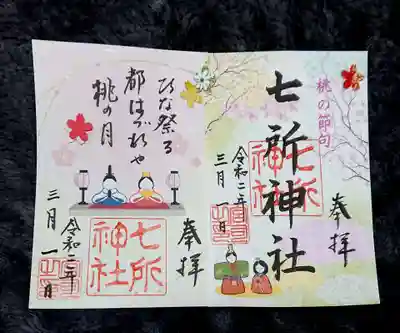 桃の節句
奉拝
七所神社
七所神社
令和二年
三月一日
ひな祭る
都はづれや
桃の月
奉拝
七所神社
令和二年
三月一日